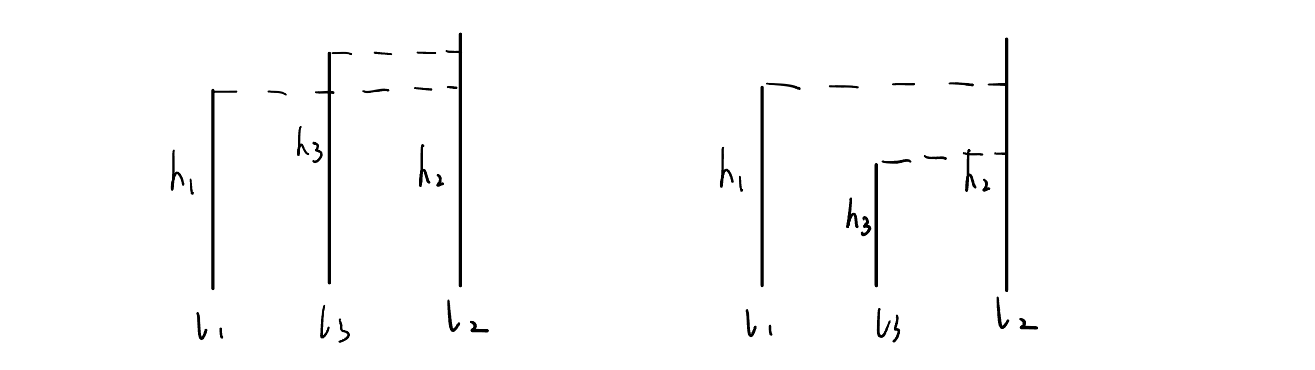 h₁ h₃ h₂
l₁ l₃ l₂
h₁ h₃ h₂
l₁ l₃ l₂